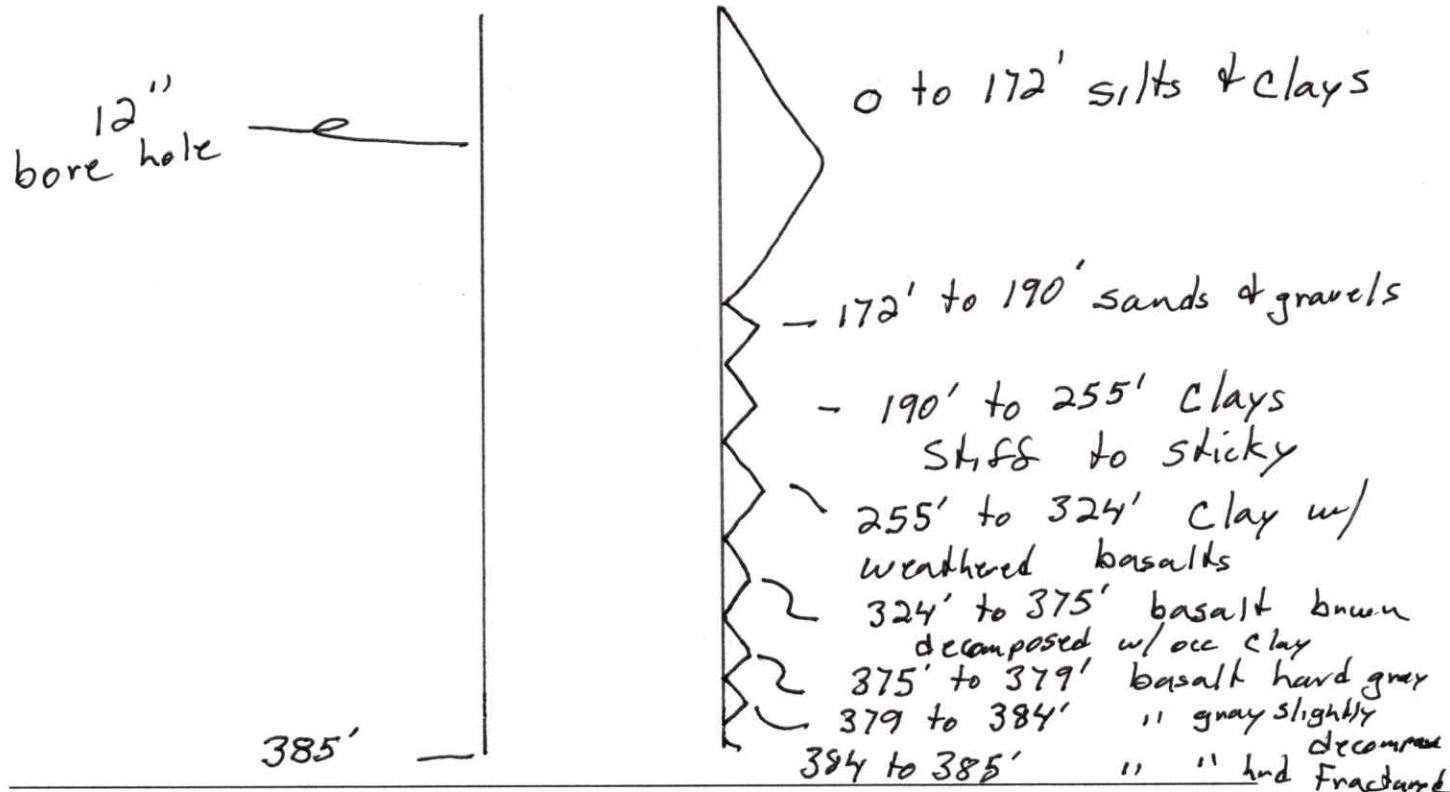 12"
bore hole
0 to 172' silts & clays
172' to 190' sands & gravels
190' to 255' Clays
Stiff to sticky
255' to 324' Clay w/
weathered basalts
324' to 375' basalt brown
decomposed w/ occ clay
375' to 379' basalt hard gray
379 to 384' " gray slightly
decompose
385'
384 to 385' " " hrd Fractured